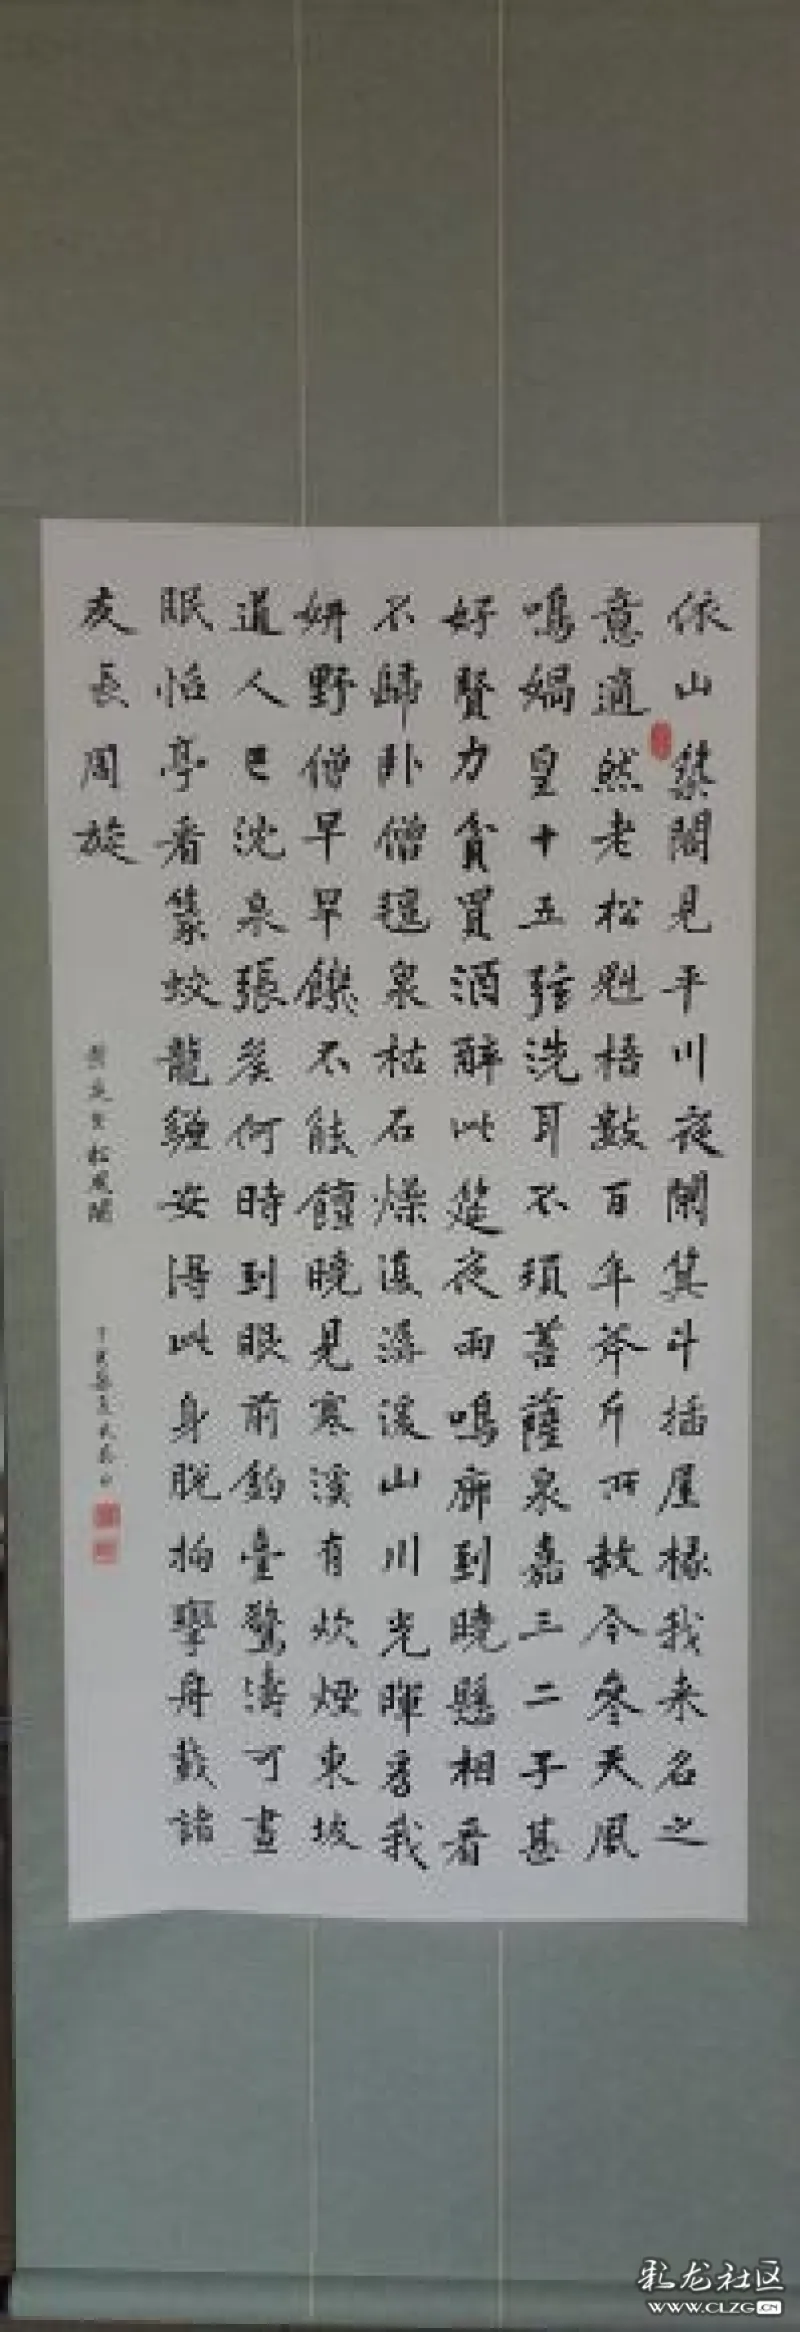 依山築閣見平川夜闌箕斗插屋椽我来名之
意適然老松魁梧數百年斧斤所赦今參天風
鳴媧皇十五弦洗耳不須菩薩泉嘉三二子甚
好賢力貧買酒醉此筵夜雨鳴廊到曉懸相看
不歸卧僧氈泉枯石燥復潺湲山川光暉為我
妍野僧早旱饑不能饘曉見寒溪有炊煙東坡
道人已沈泉張侯何時到眼前釣臺驚濤可晝
眠怡亭看篆蛟龍纏安得此身脱拘攣舟載諸
友長周旋
黄庭堅松風閣
彩龙社区
WWW.CLZG.CN